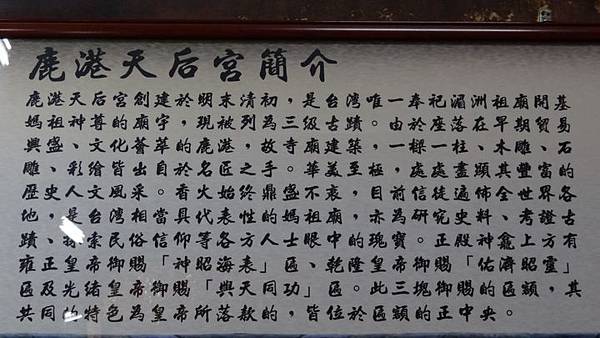 鹿港天后宮簡介
鹿港天后宮創建於明末清初,是台灣唯一奉祀湄洲祖廟開基
媽祖神尊的廟宇,現被列為三級古蹟。由於座落在早期貿易
興盛、文化薈萃的鹿港,故寺廟建築,一樑一柱、木雕、石
雕、彩繪皆出自於名匠之手。華美至極,處處盡顯其豐富的
歷史人文風采。香火始終鼎盛不衰,目前信徒遍佈全世界各
地,是台灣相當具代表性的媽祖廟,亦為研究史料、考證古
蹟、探索民俗信仰等各方人士眼中的瑰寶。正殿神龕上方有
雍正皇帝御賜「神昭海表」區、乾隆皇帝御賜「佑濟昭靈」
區及光緒皇帝御賜「與天同功」區。此三塊御賜的區額,其
共同的特色為皇帝所落款的,皆位於區額的正中央。